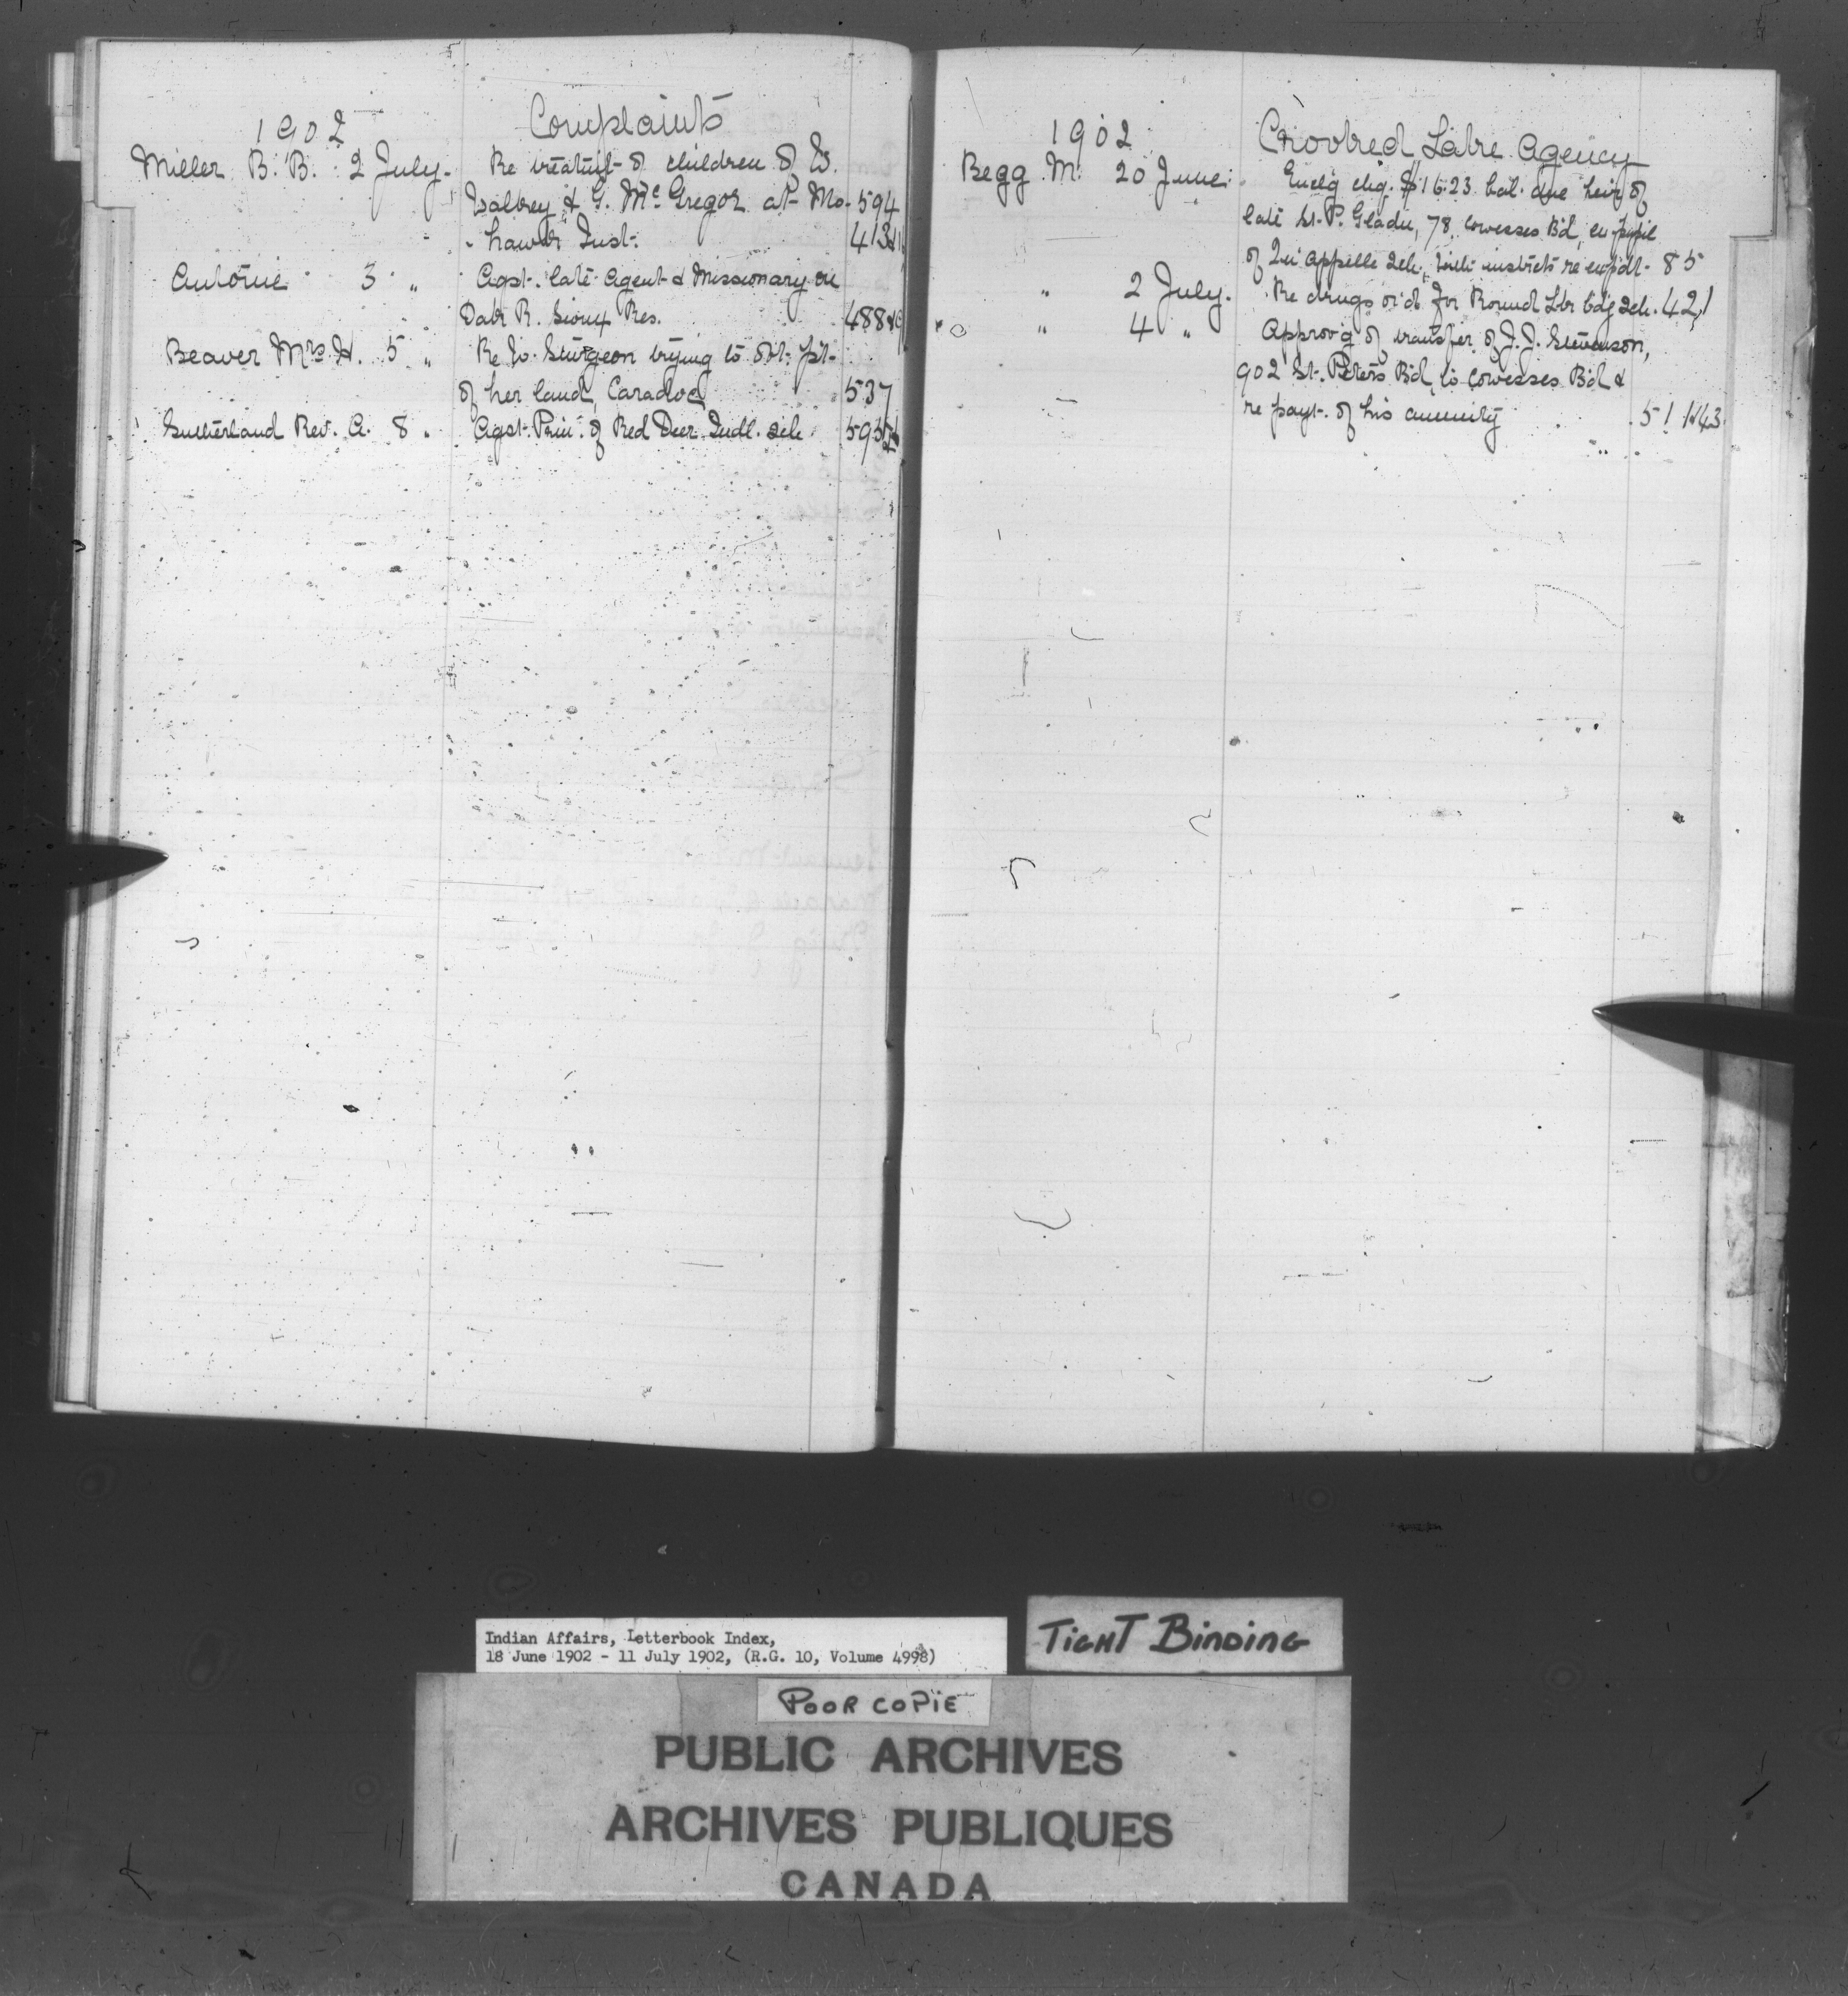 1902
Complaints
Miller B. B. 2 July. Re treatmt of children of W.
& G. McGregor at Mo- 594
hawk Inst. 413
Antoine 3 " Agst. late Agent & Missionary on
Oak R. Sioux Res. 488
Beaver Mrs H. 5 " Re W. Sturgeon trying to obt. pt-
of her land, Caradoc 537
Sutherland Rev. A. 8 " Agst. Prin. of Red Deer Indl. sch.
1902
Crooked Lake Agency
Begg M. 20 June. Enclg chq. $16.23 bal. due heirs of
late St. P. Gladu, 78, Cowesses Bd, ex pupil
of Qu'Appelle Sch. with instrcts re expdt- 85
" 2 July. Re drugs or'd for Round Lke bdg Sch. 421
" 4 " Approv'g of transfer of J. J. Stevenson,
902 St. Peters Bd, to Cowesses Bd &
re payt. of his annuity 511
Indian Affairs, Letterbook Index,
18 June 1902 - 11 July 1902, (R.G. 10, Volume 4998)
TIGHT BINDING
POOR COPIE
PUBLIC ARCHIVES
ARCHIVES PUBLIQUES
CANADA